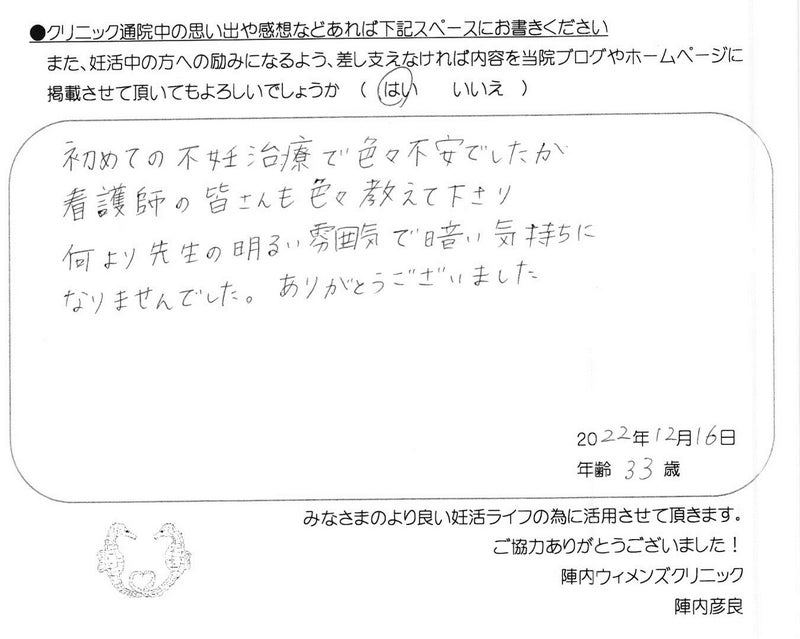 ●クリニック通院中の思い出や感想などあれば下記スペースにお書きください
また、妊活中の方への励みになるよう、差し支えなければ内容を当院ブログやホームページに
掲載させて頂いてもよろしいでしょうか （ はい いいえ ）
初めての不妊治療で色々不安でしたが
看護師の皆さんも色々教えて下さり
何より先生の明るい雰囲気で暗い気持ちに
なりませんでした。ありがとうございました
2022年12月16日
年齢 33 歳
みなさまのより良い妊活ライフの為に活用させて頂きます。
ご協力ありがとうございました！
陣内ウィメンズクリニック
陣内彦良